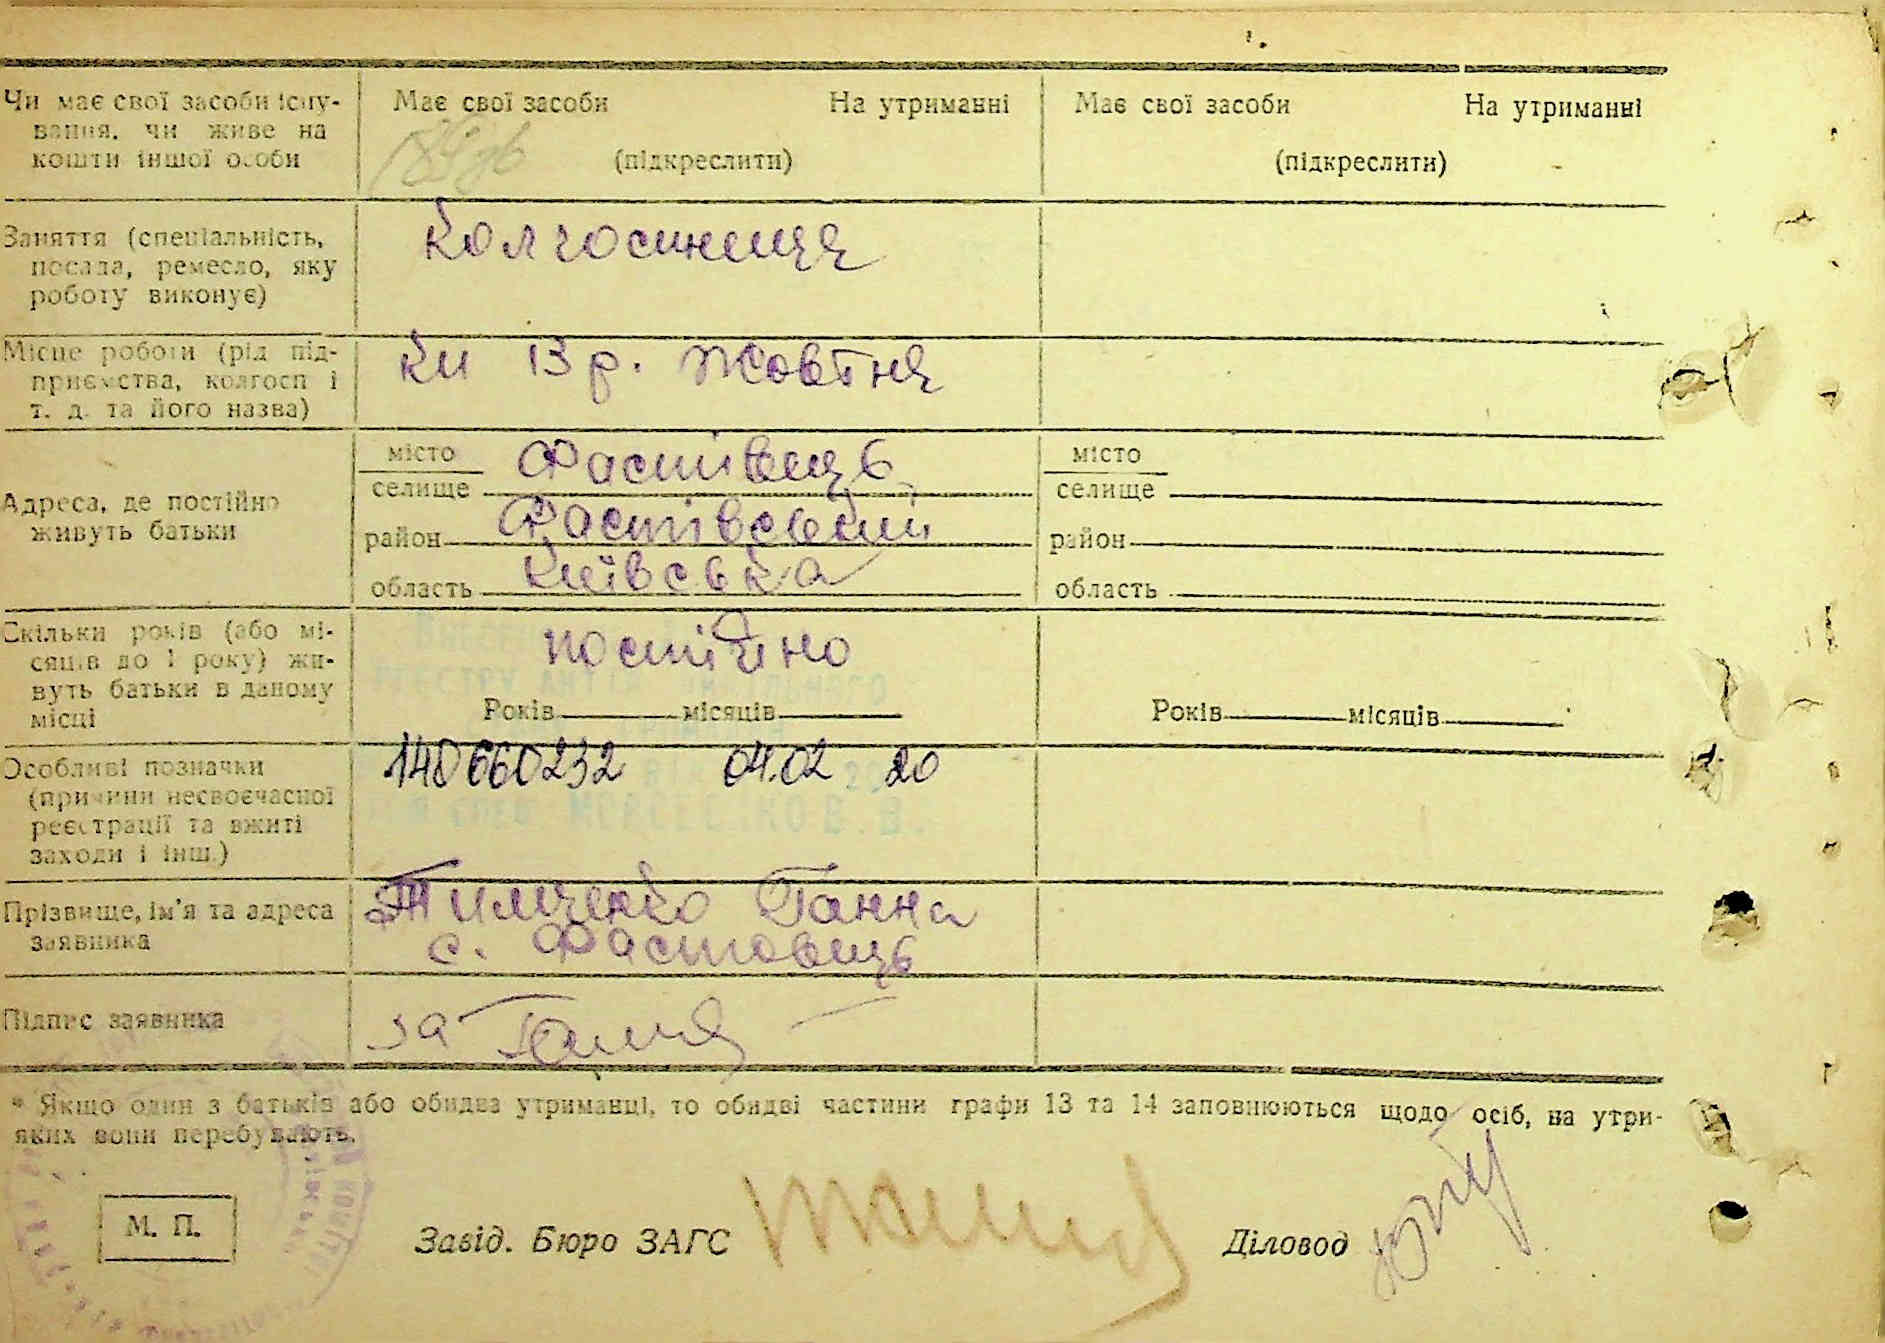 Чи має свої засоби існу-
вання, чи живе на
кошти іншої особи
Має свої засоби На утриманні
(підкреслити)
Має свої засоби На утриманні
(підкреслити)
Заняття (спеціальність,
посада, ремесло, яку
роботу виконує)
Колгоспниця
Місце роботи (рід під-
приємства, колгосп і
т. д. та його назва)
13 р. Жовтня
Адреса, де постійно
живуть батьки
місто Фастівець
селище
район Фастівський
область Київська
місто
селище
район
область
Скільки років (або мі-
сяців до 1 року) жи-
вуть батьки в даному
місці
постійно
Років місяців
Років місяців
Особливі позначки
(причини несвоєчасної
реєстрації та вжиті
заходи і інш.)
140660232 04.02 20
Прізвище, ім'я та адреса
заявника
Тимченко Ганна
с. Фастовець
Підпис заявника
за
* Якщо один з батьків або обидва утриманці, то обидві частини графи 13 та 14 заповнюються щодо осіб, на утри-
яких вони перебувають.
М. П.
Завід. Бюро ЗАГС
Діловод